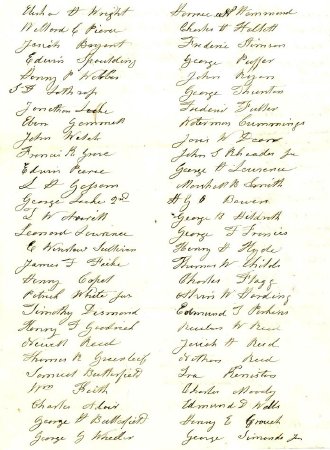 Elisha H Wright
Willard C Pierce
Josiah Bryant
Edwin Spaulding
Henry P Webber
S F Lothrop
Jonathan Locke
Alvin Gammell
John Welch
Francis R Gore
Edwin Pierce
L H
George Locke 2nd
L W
Leonard Lawrence
C Winslow Sullivan
James F
Henry
Patrick White Jur
Timothy Desmond
Henry F Goodrich
Newell Reed
Thomas R Greenleaf
Samuel Butterfield
Wm Keith
Charles Adair
George H Butterfield
George G Wheeler
Horace H Hammond
Charles H Hallett
Frederic Stimson
George Puffer
John Ryan
George Thurston
Frederic Fuller
Waterman Cummings
Jonas W
John S Rhoades Jr
George P Lawrence
Marshall R Smith
H G O Bowen
George B Hildreth
George F Francis
Henry H Hyde
Thomas W Childs
Charles Flagg
Alvin W Harding
Edmund T Perkins
Reuben W Reed
Josiah H Reed
Nathan Reed
Ira Remiston
Charles Moody
Edmund D Wells
Henry E Crouch
George Simonds Jr